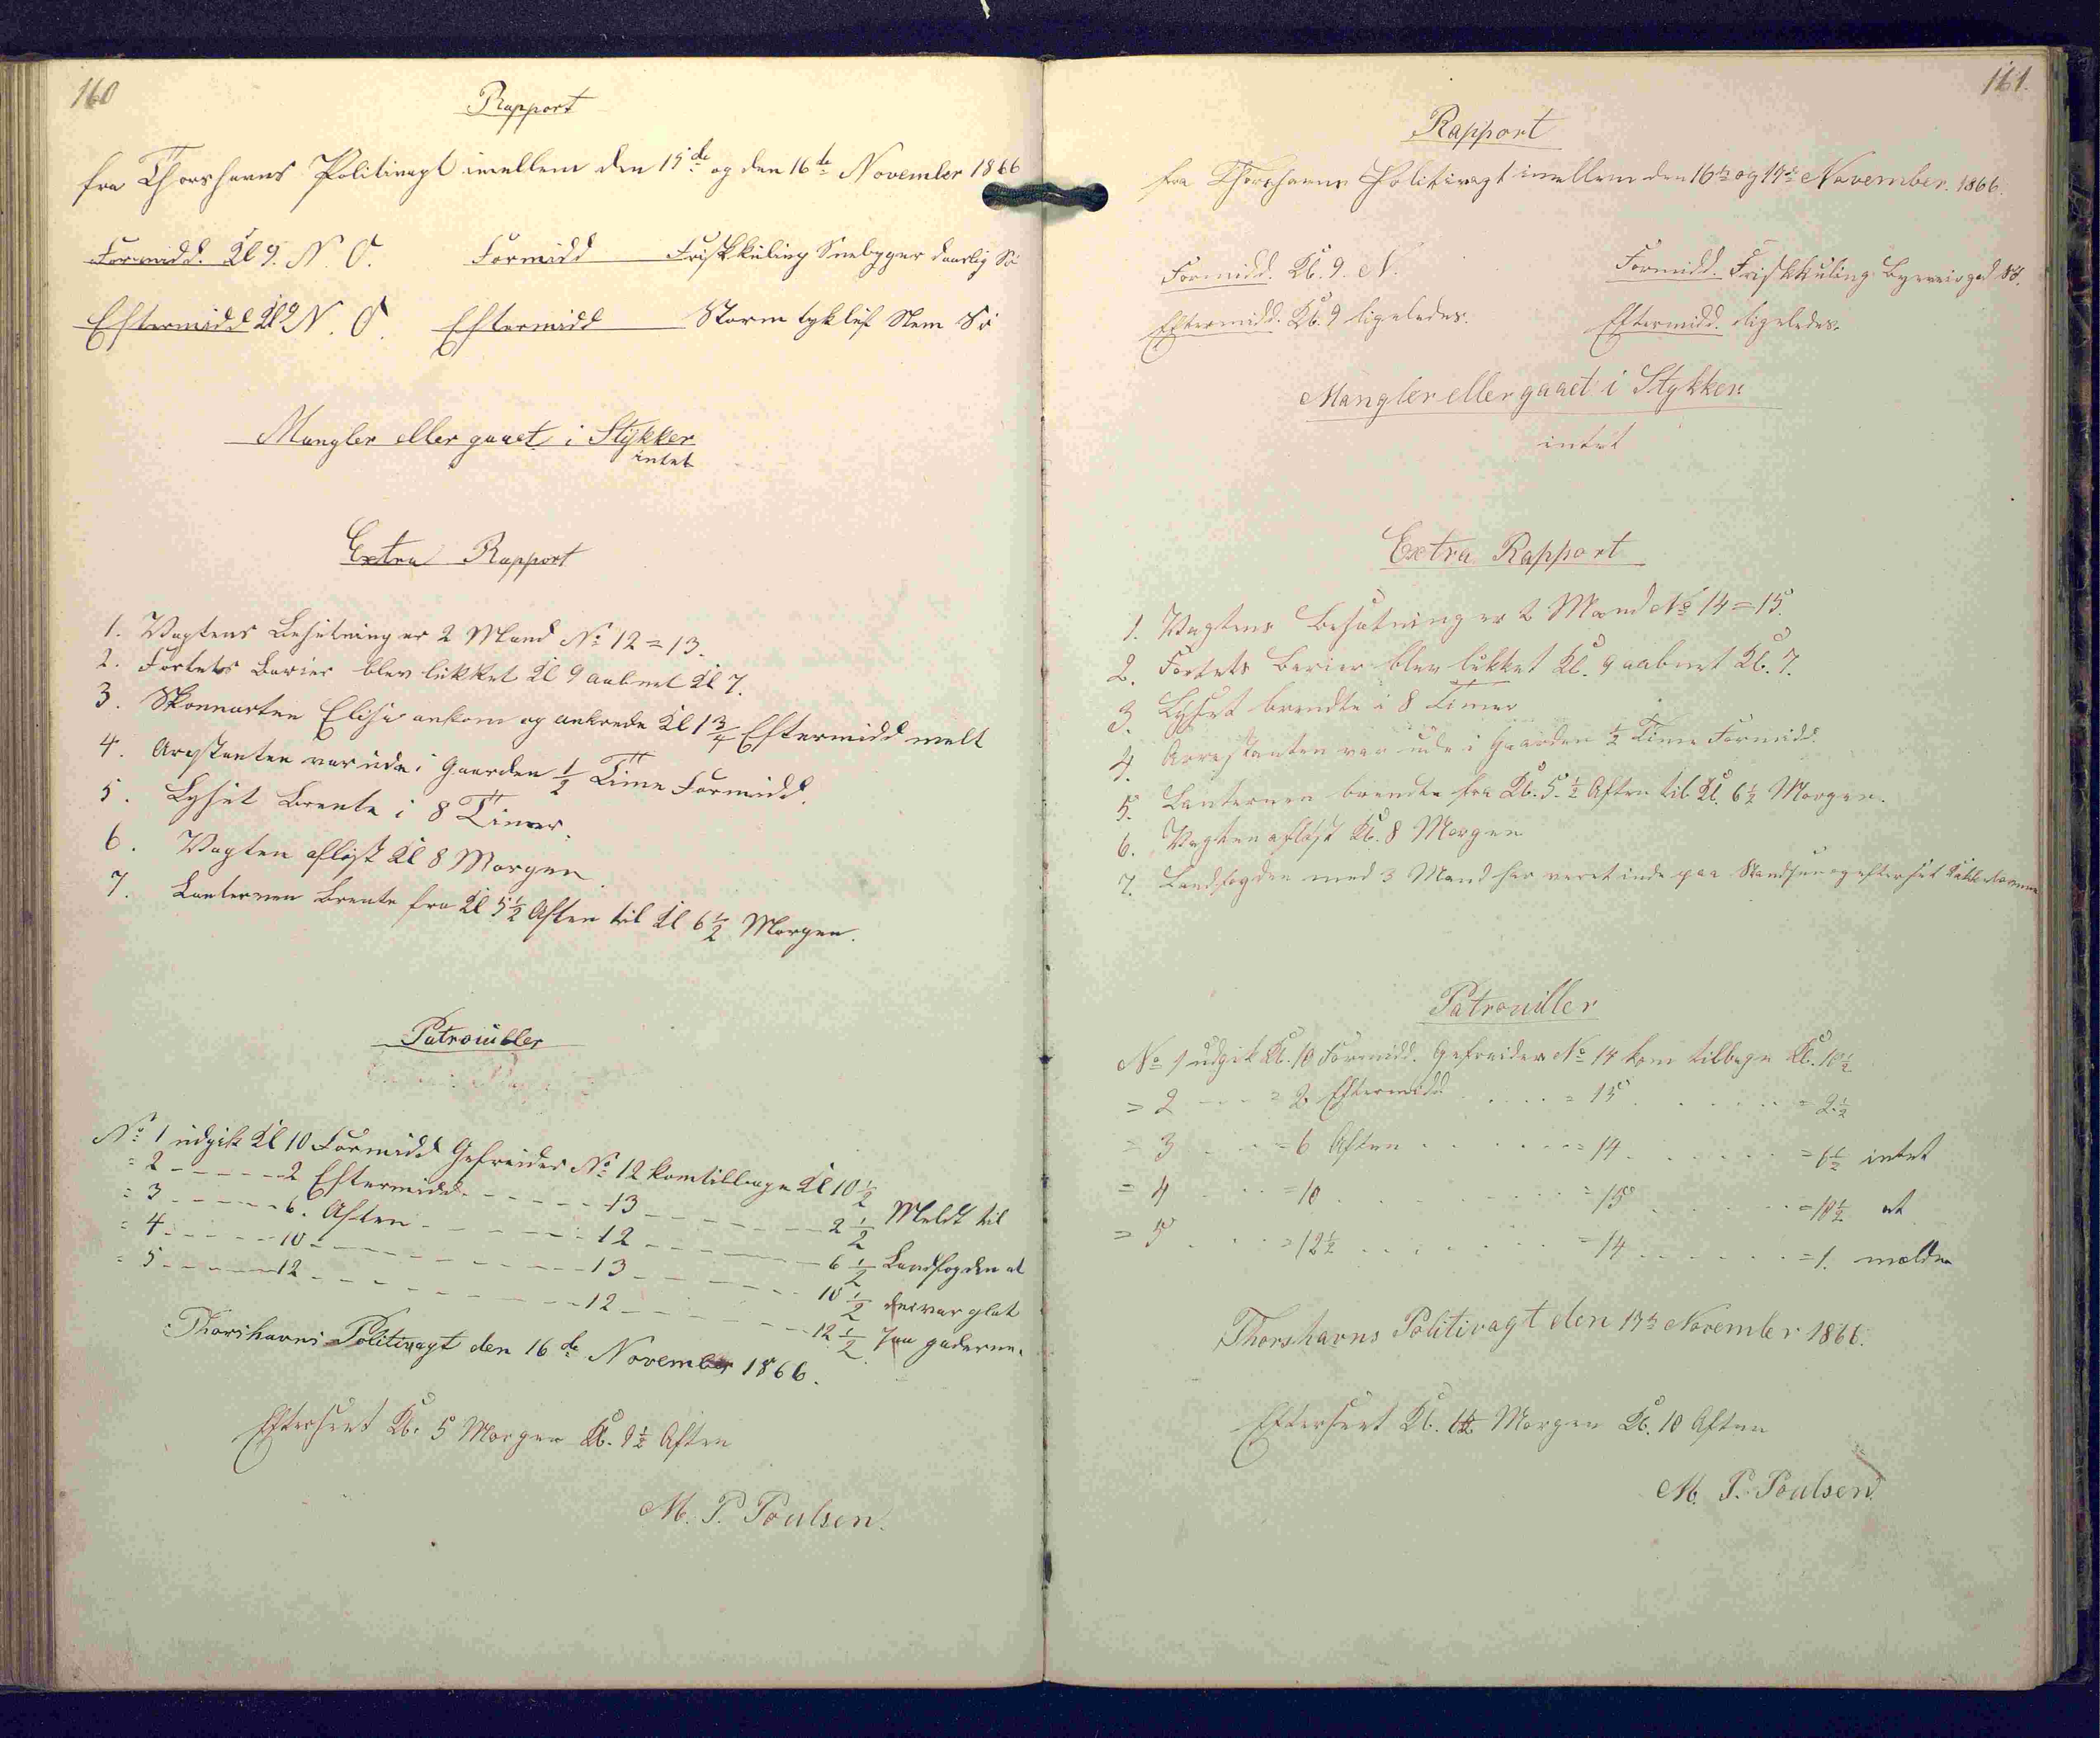 160
Rapport
fra Thorshavns Politivagt imellem den 15de og den 16de November 1866
Formidd. Kl 9. N. O. Formidd Friskkuling Sneebyger daarlig Sö
Eftermidd Kl 9 N. O. Eftermidd Storm tyk Slem Sö
Mangler eller gaaet i Stykker
intet
Extra Rapport
1. Vagtens Besetning er 2 Mand No 12 = 13.
2. Fortets Barier blev lukket Kl 9 aabnet Kl 7.
3. Skonnarten Elise ankom og ankrede Kl 1 3/4 Eftermidd melt
4. Arestanten var ude i Gaarden 1/2 Time Formidd.
5. Lyset brente i 8 Timer.
6. Vagten aflöst Kl 8 Morgen.
7. Lanternen brente fra Kl 5 1/2 Aften til Kl 6 1/2 Morgen.
Patrouiller
No 1 udgik Kl 10 Formidd Gefreider No 12 kom tilbage Kl 10 1/2
= 2 - - - - - 2 Eftermidd. - - - - - 13 - - - - - - 2 1/2 Meldt til
= 3 - - - - - 6. Aften - - - - - 12 - - - - - - 6 1/2 Landfogden at
= 4 - - - - - 10 - - - - - - - - 13 - - - - - - 10 1/2 der var glat
= 5 - - - - - 12 - - - - - - - - 12 - - - - - - 12 1/2 paa gaderne.
Thorshavns Politivagt den 16de November 1866.
Efterseet Kl. 5 Morgen Kl. 9 1/2 Aften
M. P. Poulsen.
161.
Rapport
fra Thorshavns Politivagt imellem den 16de og 17de November. 1866.
Formidd. Kl. 9. N. Formidd. Friskkuling Byeveir god Sö.
Eftermidd. Kl. 9 ligeledes. Eftermidd. ligeledes.
Mangler eller gaaet i Stykker.
intet
Extra Rapport
1. Vagtens Besætning er 2 Mand No 14 = 15.
2. Fortets Barier blev lukket Kl. 9 aabnet Kl. 7.
3. Lyset brendte i 8 Timer
4. Arrestanten var ude i Gaarden 1/2 Time Formidd.
5. Lanternen brendte fra Kl. 5. 1/2 Aften til Kl. 6 1/2 Morgen.
6. Vagten aflöst Kl. 8 Morgen
7. Landfogden med 3 Mand har veret inde paa og efterset
Patrouiller
No 1 udgik Kl. 10 Formidd. Gefreider No 14 kom tilbage Kl. 10 1/2
= 2 - - - = 2. Eftermidd . . . . = 15 . . . . . = 2 1/2
= 3 . . . = 6 Aften . . . . . = 14 . . . . . = 6 1/2 intet
= 4 . . . = 10 . . . . . . . = 15 . . . . . = 10 1/2 at
= 5 . . . = 12 1/2 . . . . . . = 14 . . . . . = 1. melde
Thorshavns Politivagt den 17de November 1866.
Efterseet Kl. Morgen Kl. 10 Aften
M. P. Poulsen